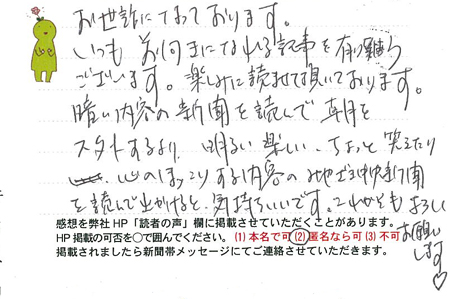 お世話になっております。
いつも お何きになれる記事を有り難う
ございます。楽しみに読ませて頂いております。
暗い内容の新聞を読んで 朝を
スタートするより、明るい 楽しい、ちょっと 笑えたり
心のほっこりする内容の 地球新聞
を読んで出かけると 気持ちいいです。これからもよろしく
お願い
します♡
感想を弊社HP「読者の声」欄に掲載させていただくことがあります。
HP掲載の可否を○で囲んでください。(1)本名で可 (2)匿名なら可 (3)不可
掲載されましたら新聞帯メッセージにてご連絡させていただきます。